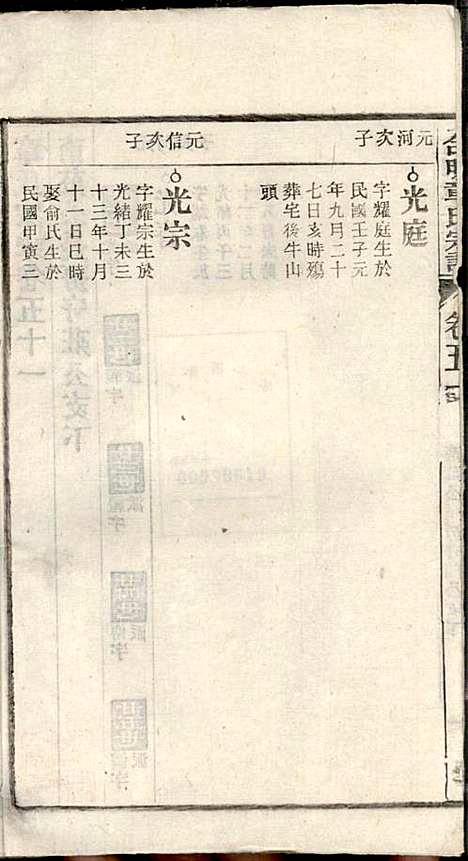 元河次子
光庭
字耀庭生於
民國壬子元
年九月二十
七日亥時殤
葬宅後牛山
頭
元信次子
光宗
字耀宗生於
光緒丁未三
十三年十月
十一日巳時
娶俞氏生於
民國甲寅三
章氏宗譜
卷五